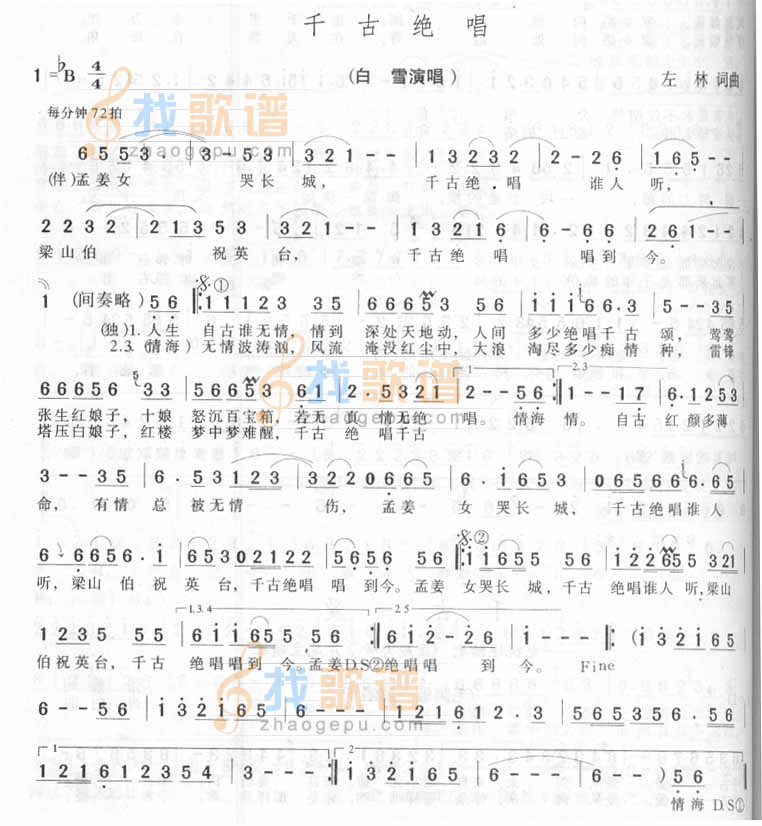 千古绝唱
1=♭B 4/4 (白 雪演唱) 左 林 词曲
每分钟72拍
找歌谱
zhaogepu.com
6 5 5 3. 3 - 5 3 | 3 2 1 - - | 1 3 2 3 2 | 2 - 2 6 | 1 6 5 - - |
(伴)孟姜女 哭长 城, 千古绝 唱 谁人 听,
2 2 3 2 | 2 1 3 5 3 | 3 2 1 - - | 1 3 2 1 6 | 6. 6 6 | 2 6 1 - - |
梁山伯 祝英 台, 千古绝 唱 唱到 今。
1 (间奏略) 5 6 |: 𝄋① 1 1 1 2 3 3 5 | 6 6 6 6 5 3 | 5 6 | i i i 6 6. 3 | 5 - - 3 5 |
(独)1.人生 自古谁无情, 情到 深处天地动, 人间 多少绝唱千古 颂, 莺莺
2.3.(情海) 无情波涛汹, 风流 淹没红尘中, 大浪 淘尽多少痴情 种, 雷锋
找歌谱
6 6 6 5 6 3 3 | 5 6 6 5 3 | 6 1 2. 5 3 2 1 | 1. 2 - - 5 6 :| 2.3. 1 - - 1 7 | 6. 1 2 5 3 |
张生红娘子, 十娘 怒沉百宝箱, 若无 真 情无绝 唱。 情海 情。 自古 红 颜多薄
塔压白娘子, 红楼 梦中梦难醒, 千古 绝 唱千古
zhaogepu.com
3 - - 3 5 | 6. 5 3 1 2 3 | 3 2 2 0 6 6 5 | 6. 1 6 5 3 | 0 6 5 6 6. 6 5 |
命, 有情 总 被无情 伤, 孟姜 女 哭长 城, 千古绝唱谁人
6 6 6 5 6. i | 6 5 3 0 2 1 2 2 | 5 6 5 6 5 6 |: 𝄋② i i 6 5 5 5 6 | i. 2 2 6 5 5 3 5 |
听, 梁山 伯 祝 英 台, 千古绝唱 唱 到今。 孟姜 女哭长 城, 千古 绝唱谁人 听, 梁山
1 2 3 5 5 5 | 1.3.4 6 i i 6 5 5 5 6 :| 2.5 6 i 2 - 2 6 | i - - - :| (i 3 2 i 6 5
伯祝英台, 千古 绝唱唱到 今。孟姜D.S②绝唱唱 到 今。 Fine
找歌谱
6 - - 5 6 | i 3 2 i 6 5 | 6 - - - | 1 2 1 6 1 2. 3 | 5 6 5 3 5 6. 5 6 |
zhaogepu.com
1 1 2 1 6 1 2 3 5 4 | 3 - - - :| 2 2 1 2 3 1 2 6 | 6 - - - ) 5 6 ||
情海 D.S①